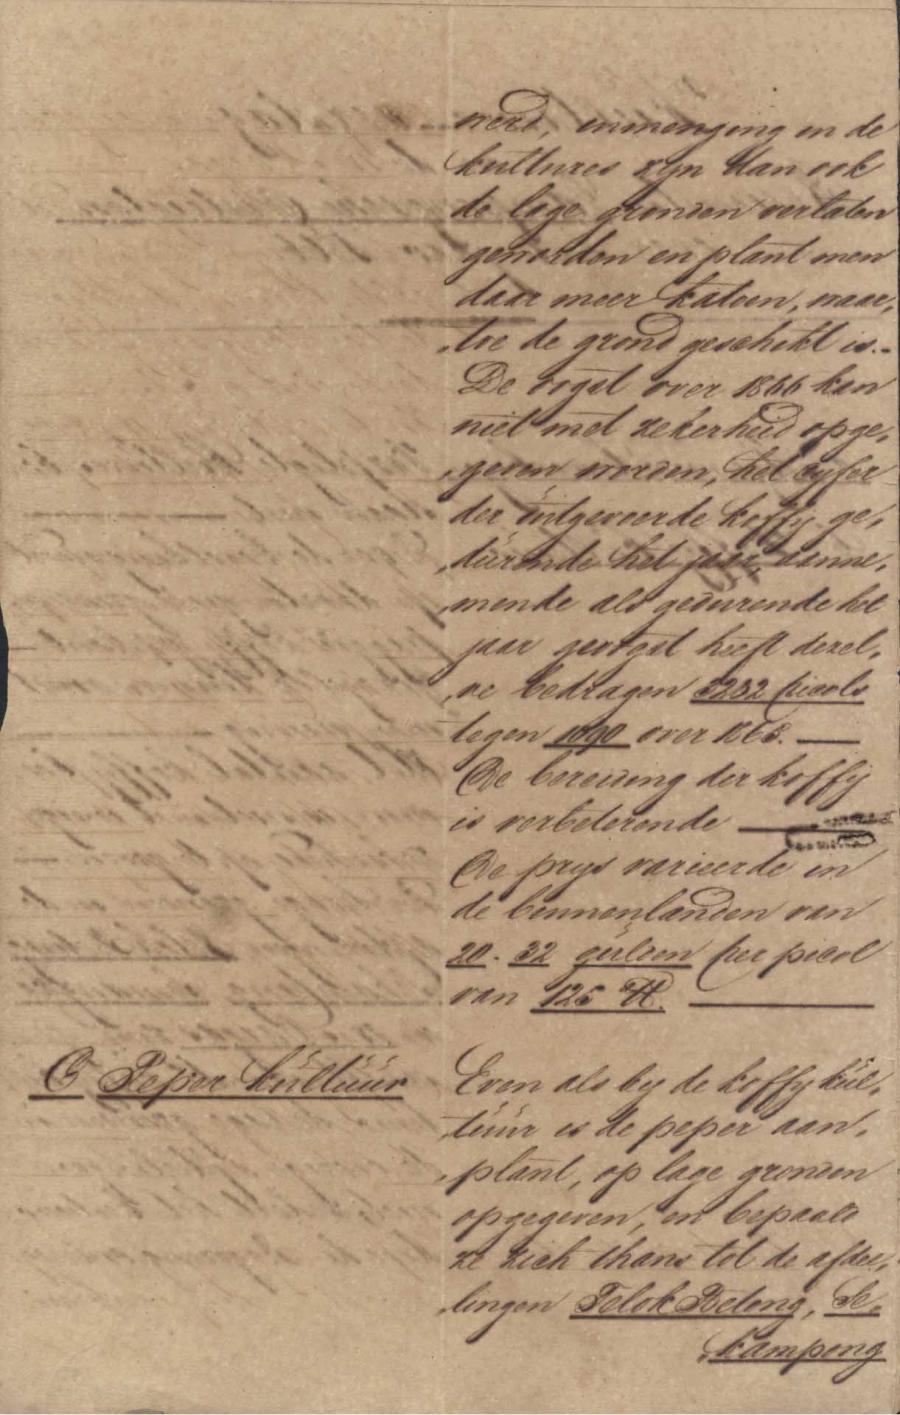 werd, inmenging in de
kultures zyn dan ook
de lage gronden verlaten
geworden en plant men
daar meer katoen, waar„
„toe de grond geschikt is.-
De oogst over 1866 kan
niet met zekerheid opge„
„geven worden, het cyfer
der uitgevoerde koffy ge„
„durende het jaar, aanne„
„mende als gedurende het
jaar geoogst heeft dezel„
„ve bedragen 3232 picols
tegen 1090 over 1865.
De bereiding der koffy
is verbeterende
De prys varieerde in
de binnenlanden van
20 - 32 gulden per picol
van 125 ℔.
C Peper kultuur
Even als by de koffy kul„
„tuur is de peper aan„
„plant, op lage gronden
opgegeven, en bepaald
ze zich thans tot de afdee„
„lingen Telok Betong, Se„
„kampong